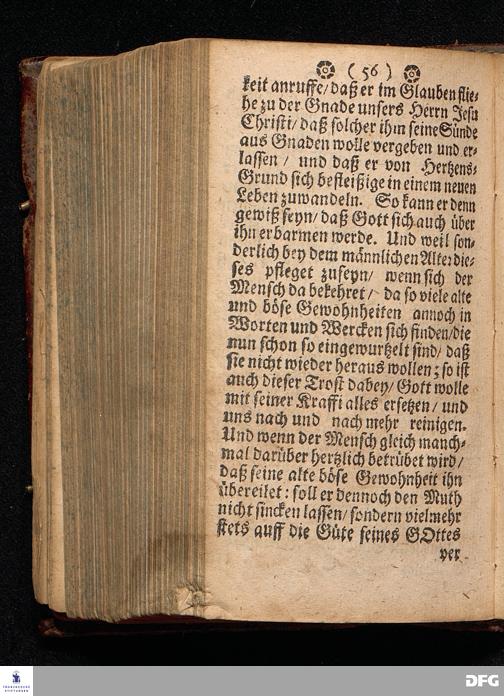 ( 56 )
keit anruffe / daß er im Glauben flie-
he zu der Gnade unsers Herrn Jesu
Christi / daß solcher ihm seine Sünde
aus Gnaden wolle vergeben und er-
lassen / und daß er von Hertzens-
Grund sich befleißige in einem neuen
Leben zuwandeln. So kann er denn
gewiß seyn / daß Gott sich auch über
ihn erbarmen werde. Und weil son-
derlich bey dem männlichen Alter die-
ses pfleget zuseyn / wenn sich der
Mensch da bekehret / da so viele alte
und böse Gewohnheiten annoch in
Worten und Wercken sich finden / die
nun schon so eingewurtzelt sind / daß
sie nicht wieder heraus wollen; so ist
auch dieser Trost dabey / Gott wolle
mit seiner Krafft alles ersetzen / und
uns nach und nach mehr reinigen.
Und wenn der Mensch gleich manch-
mal darüber hertzlich betrübet wird /
daß seine alte böse Gewohnheit ihn
übereilet: soll er dennoch den Muth
nicht sincken lassen / sondern vielmehr
stets auff die Güte seines GOttes
ver
FRANCKESCHE
STIFTUNGEN
DFG